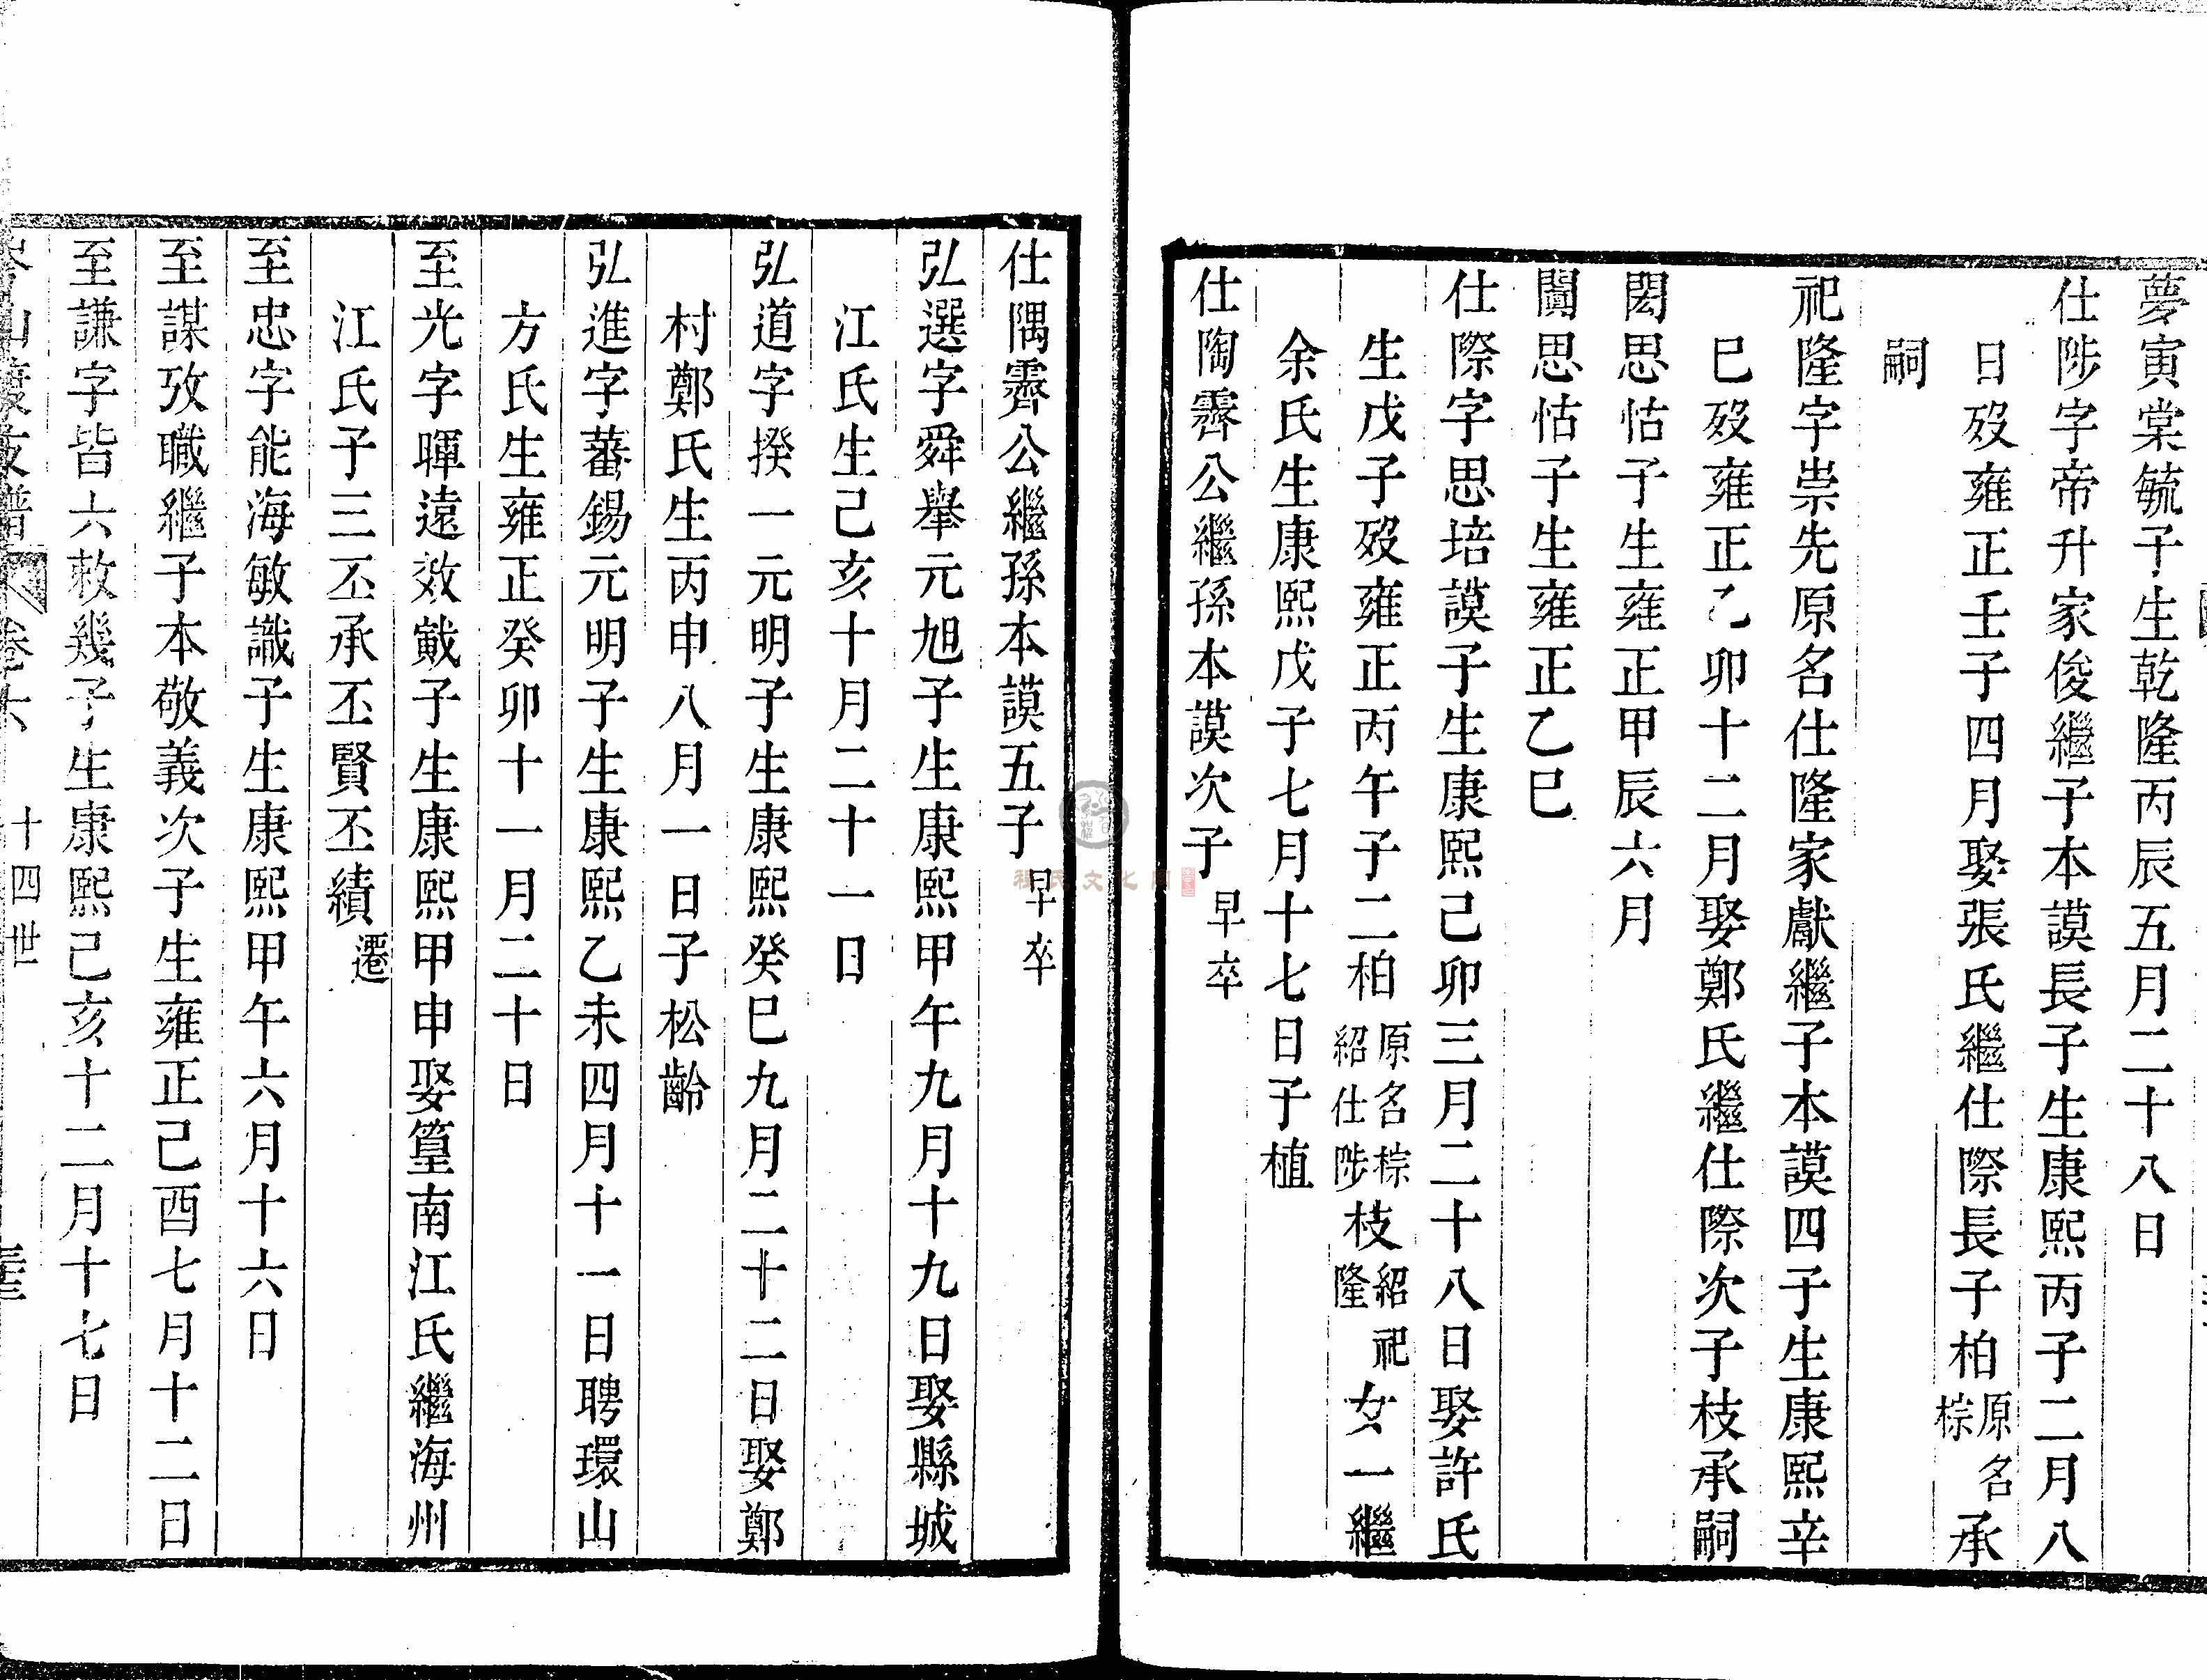 夢寅棠毓子生乾隆丙辰五月二十八日
仕陟字帝升家俊繼子本謨長子生康熙丙子二月八
日歿雍正壬子四月娶張氏繼仕際長子柏原名棕承
嗣
祀隆字崇先原名仕隆家獻繼子本謨四子生康熙辛
巳歿雍正乙卯十二月娶鄭氏繼仕際次子枝承嗣
閎思怙子生雍正甲辰六月
闠思怙子生雍正乙巳
仕際字思培謨子生康熙己卯三月二十八日娶許氏
生戊子歿雍正丙午子二柏原名棕紹仕陟枝紹祀隆女一繼
余氏生康熙戊子七月十七日子植
仕陶霽公繼孫本謨次子早卒
仕隅霽公繼孫本謨五子早卒
弘選字舜舉元旭子生康熙甲午九月十九日娶縣城
江氏生己亥十月二十一日
弘道字揆一元明子生康熙癸巳九月二十二日娶鄭
村鄭氏生丙申八月一日子松齡
弘進字蕃錫元明子生康熙乙未四月十一日聘環山
方氏生雍正癸卯十一月二十日
至光字暉遠效戭子生康熙甲申娶篁南江氏繼海州
江氏子三丕承丕賢丕績遷
至忠字能海敏識子生康熙甲午六月十六日
至謀攷職繼子本敬義次子生雍正己酉七月十二日
至謙字皆六敕幾子生康熙己亥十二月十七日
岑山渡支譜 卷六 十四世